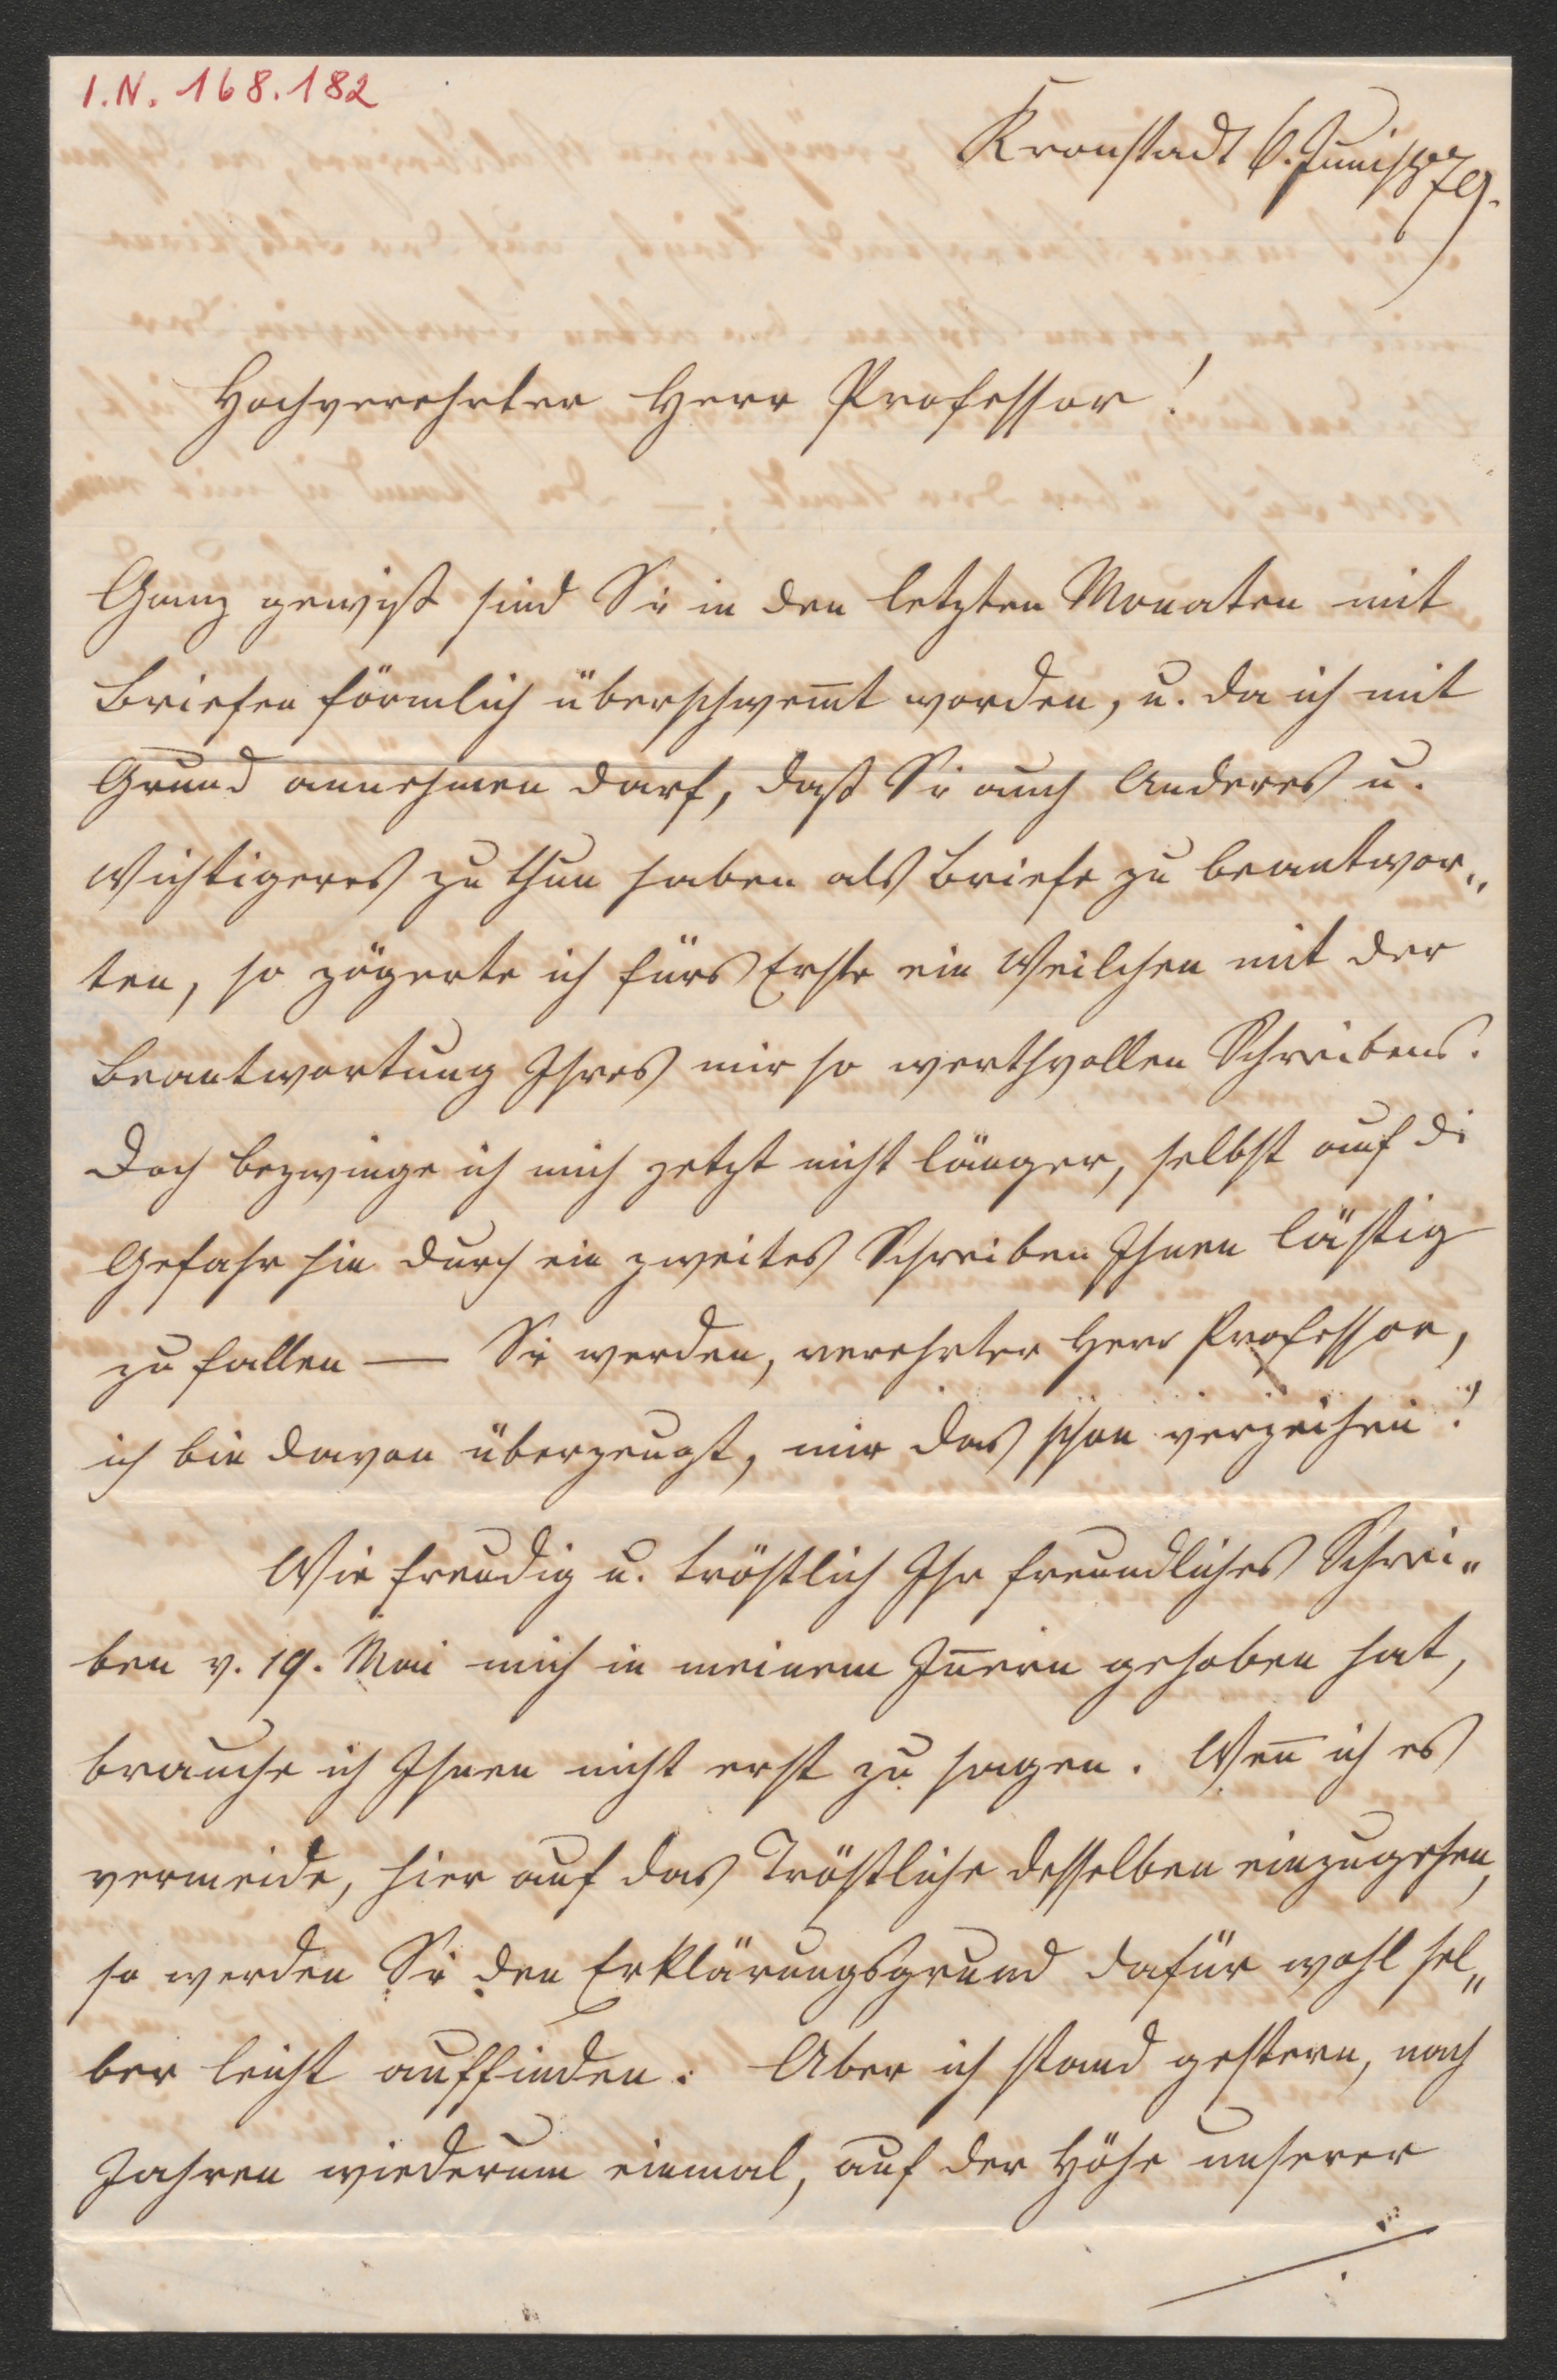 I.N. 168.182
Kronstadt 6. Juni 1879.
Hochverehrter Herr Professor!
Ganz gewiß sind Sie in den letzten Monaten mit
Briefen förmlich überschwem̅t worden, u. da ich mit
Grund annehmen darf, daß Sie auch Anderes u.
Wichtigeres zu thun haben als Briefe zu beantwor„
ten, so zögerte ich fürs Erste ein Weilchen mit der
Beantwortung Ihres mir so werthvollen Schreibens.
Doch bezwinge ich mich jetzt nicht länger, selbst auf die
Gefahr hin durch ein zweites Schreiben Ihnen lästig
zu fallen — Sie werden, verehrter Herr Professor,
ich bin davon überzeugt, mir das schon verzeihen!
Wie freudig u. tröstlich Ihr freundliches Schrei„
ben v. 19. Mai mich in meinem In̅ern gehoben hat,
brauche ich Ihnen nicht erst zu sagen. Wen̅ ich es
vermeide, hier auf das Tröstliche desselben einzugehen,
so werden Sie den Erklärungsgrund dafür wohl sel„
ber leicht auffinden. Aber ich stand gestern, nach
Jahren wiederum einmal, auf der Höhe unserer